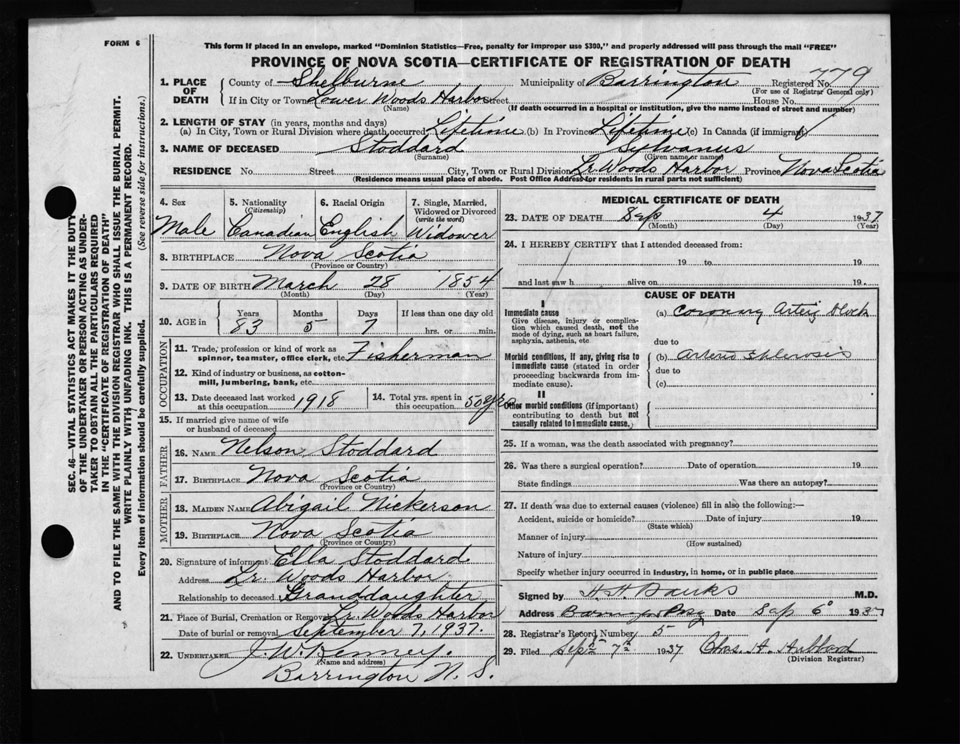 FORM 6
This form if placed in an envelope, marked "Dominion Statistics—Free, penalty for improper use $300," and properly addressed will pass through the mail "FREE"
PROVINCE OF NOVA SCOTIA—CERTIFICATE OF REGISTRATION OF DEATH
1. PLACE OF DEATH
County of Shelburne Municipality of Barrington Registered No. 779
(For use of Registrar General only)
If in City or Town Lower Woods Harbor Street House No.
(Name) (If death occurred in a hospital or institution, give the name instead of street and number)
2. LENGTH OF STAY (in years, months and days)
(a) In City, Town or Rural Division where death occurred Lifetime (b) In Province Lifetime (c) In Canada (if immigrant) /
3. NAME OF DECEASED Stoddard Sylvanus
(Surname) (Given name or names)
RESIDENCE No. Street City, Town or Rural Division Lr. Woods Harbor Province Nova Scotia
(Residence means usual place of abode. Post Office Address for residents in rural parts not sufficient)
4. Sex
Male
5. Nationality
(Citizenship)
Canadian
6. Racial Origin
English
7. Single, Married, Widowed or Divorced
(write the word)
Widower
8. BIRTHPLACE Nova Scotia
(Province or Country)
9. DATE OF BIRTH March 28 1854
(Month) (Day) (Year)
10. AGE in
Years Months Days If less than one day old
83 5 7 hrs. or min.
OCCUPATION
11. Trade, profession or kind of work as spinner, teamster, office clerk, etc. Fisherman
12. Kind of industry or business, as cotton-mill, lumbering, bank, etc.
13. Date deceased last worked at this occupation 1918
14. Total yrs. spent in this occupation 50 yrs
15. If married give name of wife or husband of deceased
FATHER
16. NAME Nelson Stoddard
17. BIRTHPLACE Nova Scotia
(Province or Country)
MOTHER
18. MAIDEN NAME Abigail Nickerson
19. BIRTHPLACE Nova Scotia
(Province or Country)
20. Signature of informant Ella Stoddard
Address Lr. Woods Harbor
Relationship to deceased Granddaughter
21. Place of Burial, Cremation or Removal Lr. Woods Harbor
Date of burial or removal September 7, 1937.
22. UNDERTAKER J. W. Kenney.
(Name and address)
Barrington N. S.
MEDICAL CERTIFICATE OF DEATH
23. DATE OF DEATH Sep 4 1937
(Month) (Day) (Year)
24. I HEREBY CERTIFY that I attended deceased from:
19 to 19
and last saw h alive on 19
CAUSE OF DEATH
I
Immediate cause
Give disease, injury or complication which caused death, not the mode of dying, such as heart failure, asphyxia, asthenia, etc
(a) Coronary Artery block
due to
Morbid conditions, if any, giving rise to immediate cause (stated in order proceeding backwards from immediate cause).
(b) Arterio sklerosis
due to
(c)
II
Other morbid conditions (if important) contributing to death but not causally related to immediate cause.
25. If a woman, was the death associated with pregnancy?
26. Was there a surgical operation? Date of operation 19
State findings Was there an autopsy?
27. If death was due to external causes (violence) fill in also the following:—
Accident, suicide or homicide? Date of injury 19
(State which)
Manner of injury
(How sustained)
Nature of injury
Specify whether injury occurred in industry, in home, or in public place
Signed by H. H. Banks M.D.
Address Date Sep 6 1937
28. Registrar's Record Number 5
29. Filed Sep 7 1937 Chas. H. Hubbard
(Division Registrar)
SEC. 46—VITAL STATISTICS ACT MAKES IT THE DUTY
OF THE UNDERTAKER OR PERSON ACTING AS UNDER-
TAKER TO OBTAIN ALL THE PARTICULARS REQUIRED
IN THE "CERTIFICATE OF REGISTRATION OF DEATH"
AND TO FILE THE SAME WITH THE DIVISION REGISTRAR WHO SHALL ISSUE THE BURIAL PERMIT.
WRITE PLAINLY WITH UNFADING INK. THIS IS A PERMANENT RECORD.
Every item of information should be carefully supplied. (See reverse side for instructions.)